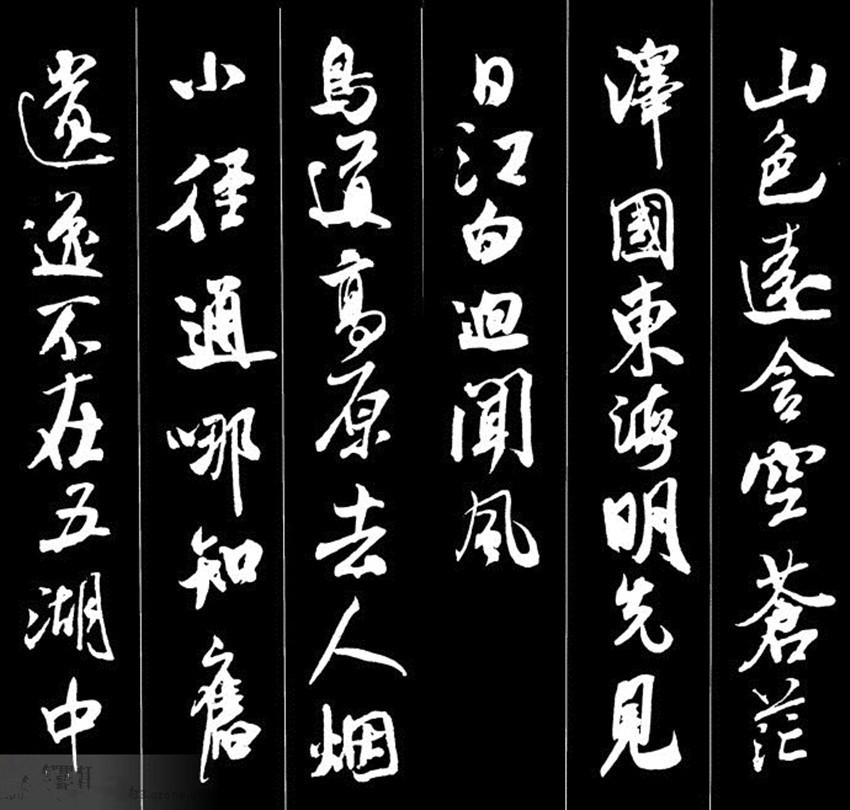 山色遠含空蒼茫
澤國東海明先見
日江白迥聞風
鳥道高原去人烟
小徑通哪知舊
遺逸不在五湖中